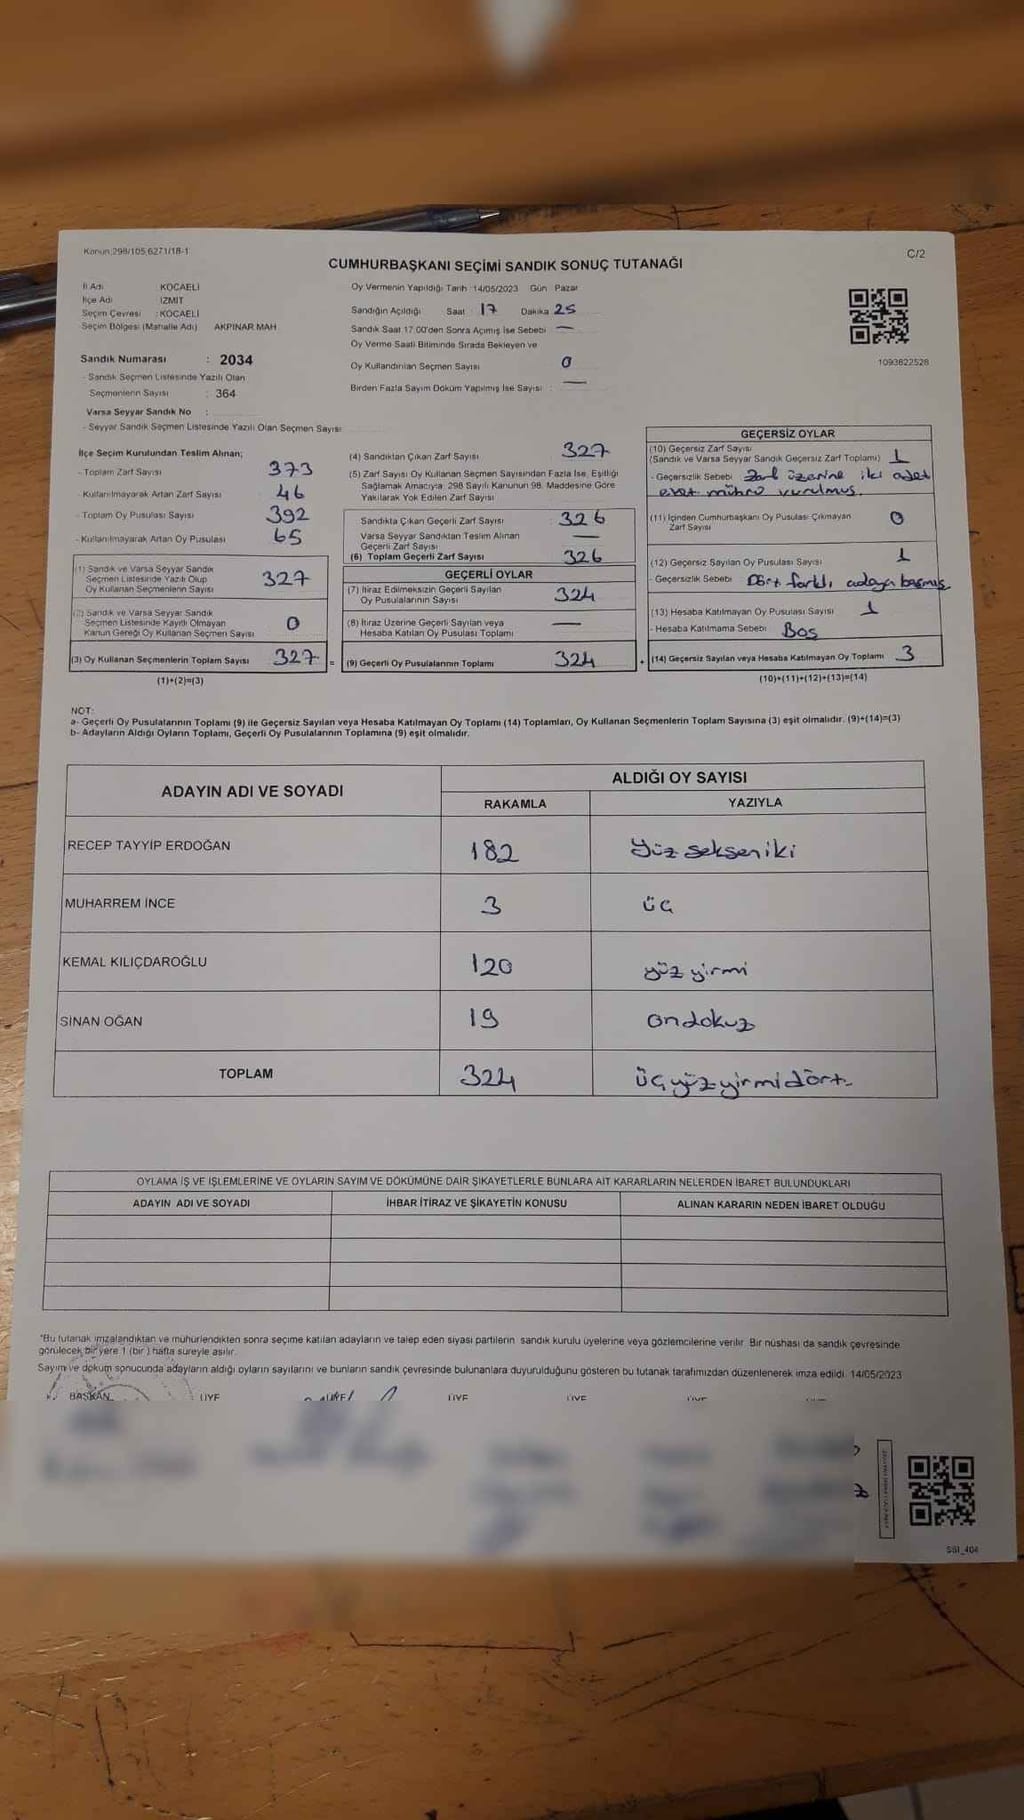 Kanun:298/105,6271/18-1
C/2
CUMHURBAŞKANI SEÇİMİ SANDIK SONUÇ TUTANAĞI
İl Adı : KOCAELİ
İlçe Adı : İZMİT
Seçim Çevresi : KOCAELİ
Seçim Bölgesi (Mahalle Adı) AKPINAR MAH
Sandık Numarası : 2034
- Sandık Seçmen Listesinde Yazılı Olan
Seçmenlerin Sayısı : 364
Varsa Seyyar Sandık No :
- Seyyar Sandık Seçmen Listesinde Yazılı Olan Seçmen Sayısı
Oy Vermenin Yapıldığı Tarih :14/05/2023 Gün Pazar
Sandığın Açıldığı Saat : 17 Dakika 25
Sandık Saat 17.00'den Sonra Açımış İse Sebebi —
Oy Verme Saati Bitiminde Sırada Bekleyen ve
Oy Kullandırılan Seçmen Sayısı 0
Birden Fazla Sayım Döküm Yapılmış İse Sayısı : —
1093822528
İlçe Seçim Kurulundan Teslim Alınan;
- Toplam Zarf Sayısı 373
- Kullanılmayarak Artan Zarf Sayısı 46
- Toplam Oy Pusulası Sayısı 392
- Kullanılmayarak Artan Oy Pusulası 65
(1) Sandık ve Varsa Seyyar Sandık
Seçmen Listesinde Yazılı Olup
Oy Kullanan Seçmenlerin Sayısı 327
(2) Sandık ve Varsa Seyyar Sandık
Seçmen Listesinde Kayıtlı Olmayan
Kanun Gereği Oy Kullanan Seçmen Sayısı 0
(3) Oy Kullanan Seçmenlerin Toplam Sayısı 327 =
(1)+(2)=(3)
(4) Sandıktan Çıkan Zarf Sayısı 327
(5) Zarf Sayısı Oy Kullanan Seçmen Sayısından Fazla İse, Eşitliği
Sağlamak Amacıyla; 298 Sayılı Kanunun 98. Maddesine Göre
Yakılarak Yok Edilen Zarf Sayısı
Sandıkta Çıkan Geçerli Zarf Sayısı : 326
Varsa Seyyar Sandıktan Teslim Alınan
Geçerli Zarf Sayısı —
(6) Toplam Geçerli Zarf Sayısı 326
GEÇERLİ OYLAR
(7) İtiraz Edilmeksizin Geçerli Sayılan
Oy Pusulalarının Sayısı 324
(8) İtiraz Üzerine Geçerli Sayılan veya
Hesaba Katılan Oy Pusulası Toplamı —
(9) Geçerli Oy Pusulalarının Toplamı 324 +
GEÇERSİZ OYLAR
(10) Geçersiz Zarf Sayısı
(Sandık ve Varsa Seyyar Sandık Geçersiz Zarf Toplamı) 1
- Geçersizlik Sebebi Zarf üzerine iki adet
evet mührü vurulmuş.
(11) İçinden Cumhurbaşkanı Oy Pusulası Çıkmayan
Zarf Sayısı 0
(12) Geçersiz Sayılan Oy Pusulası Sayısı 1
- Geçersizlik Sebebi Dört farklı adaya basmış
(13) Hesaba Katılmayan Oy Pusulası Sayısı 1
- Hesaba Katılmama Sebebi Boş
(14) Geçersiz Sayılan veya Hesaba Katılmayan Oy Toplamı 3
(10)+(11)+(12)+(13)=(14)
NOT:
a- Geçerli Oy Pusulalarının Toplamı (9) ile Geçersiz Sayılan veya Hesaba Katılmayan Oy Toplamı (14) Toplamları, Oy Kullanan Seçmenlerin Toplam Sayısına (3) eşit olmalıdır. (9)+(14)=(3)
b- Adayların Aldığı Oyların Toplamı, Geçerli Oy Pusulalarının Toplamına (9) eşit olmalıdır.
ADAYIN ADI VE SOYADI ALDIĞI OY SAYISI
RAKAMLA YAZIYLA
RECEP TAYYİP ERDOĞAN 182 Yüz seksen iki
MUHARREM İNCE 3 üç
KEMAL KILIÇDAROĞLU 120 yüz yirmi
SİNAN OĞAN 19 on dokuz
TOPLAM 324 üç yüz yirmi dört
OYLAMA İŞ VE İŞLEMLERİNE VE OYLARIN SAYIM VE DÖKÜMÜNE DAİR ŞİKAYETLERLE BUNLARA AİT KARARLARIN NELERDEN İBARET BULUNDUKLARI
ADAYIN ADI VE SOYADI İHBAR İTİRAZ VE ŞİKAYETİN KONUSU ALINAN KARARIN NEDEN İBARET OLDUĞU
*Bu tutanak imzalandıktan ve mühürlendikten sonra seçime katılan adayların ve talep eden siyasi partilerin sandık kurulu üyelerine veya gözlemcilerine verilir. Bir nüshası da sandık çevresinde
görülecek bir yere 1 (bir) hafta süreyle asılır.
Sayım ve döküm sonucunda adayların aldığı oyların sayılarını ve bunların sandık çevresinde bulunanlara duyurulduğunu gösteren bu tutanak tarafımızdan düzenlenerek imza edildi. 14/05/2023
BAŞKAN ÜYE ÜYE ÜYE ÜYE